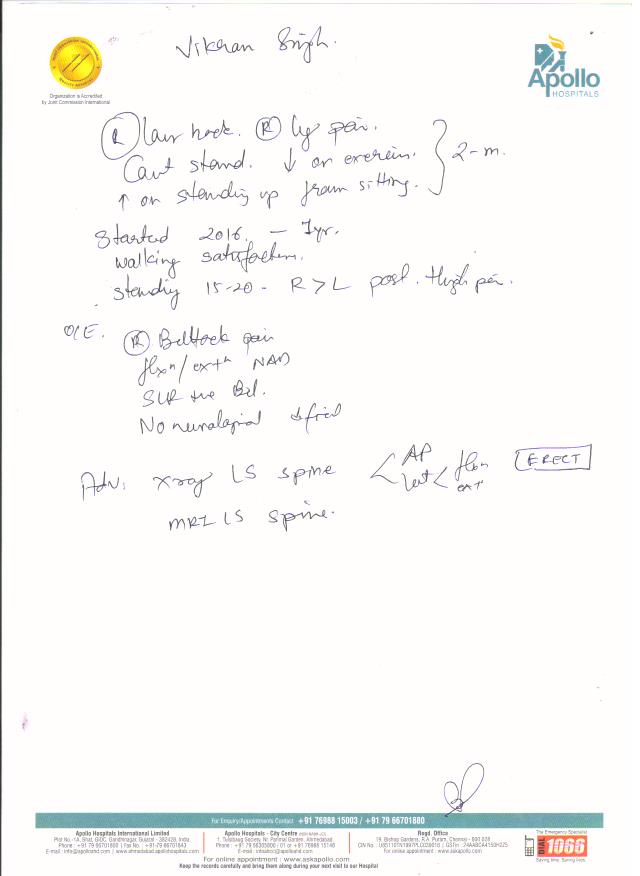 Vikran Singh.
Organization is Accredited
by Joint Commission International
Apollo
HOSPITALS
(R) low back. (R) leg pain.
Can't stand. ↓ on exercise.
↑ on standing up from sitting.
2-m.
Started 2016. - 1yr.
walking satisfactory.
standing 15-20 - R > L post. thigh pain.
O/E. (R) Buttock pain
flxn / extn NAD
SLR -ve Bil.
No neurological deficit
Adv: Xray LS spine < AP
lat < flxn
ext
ERECT
MRI LS spine.
For Enquiry/Appointments Contact +91 76988 15003 / +91 79 66701880
Apollo Hospitals International Limited
Plot No.-1A, Bhat, GIDC, Gandhinagar, Gujarat - 382428, India.
Phone : +91 79 66701800 | Fax No. : +91 79 66701843
E-mail : info@apolloahd.com | www.ahmedabad.apollohospitals.com
Apollo Hospitals - City Centre
1, Tulsibaug Society, Nr. Parimal Garden, Ahmedabad
Phone : +91 79 66305800 / 01 or +91 76988 15146
E-mail : infoahcc@apolloahd.com
Regd. Office
19, Bishop Gardens, R.A. Puram, Chennai - 600 028
For online appointment : www.askapollo.com
For online appointment : www.askapollo.com
Keep the records carefully and bring them along during your next visit to our Hospital
The Emergency Specialist
DIAL 1066
Saving time. Saving lives.